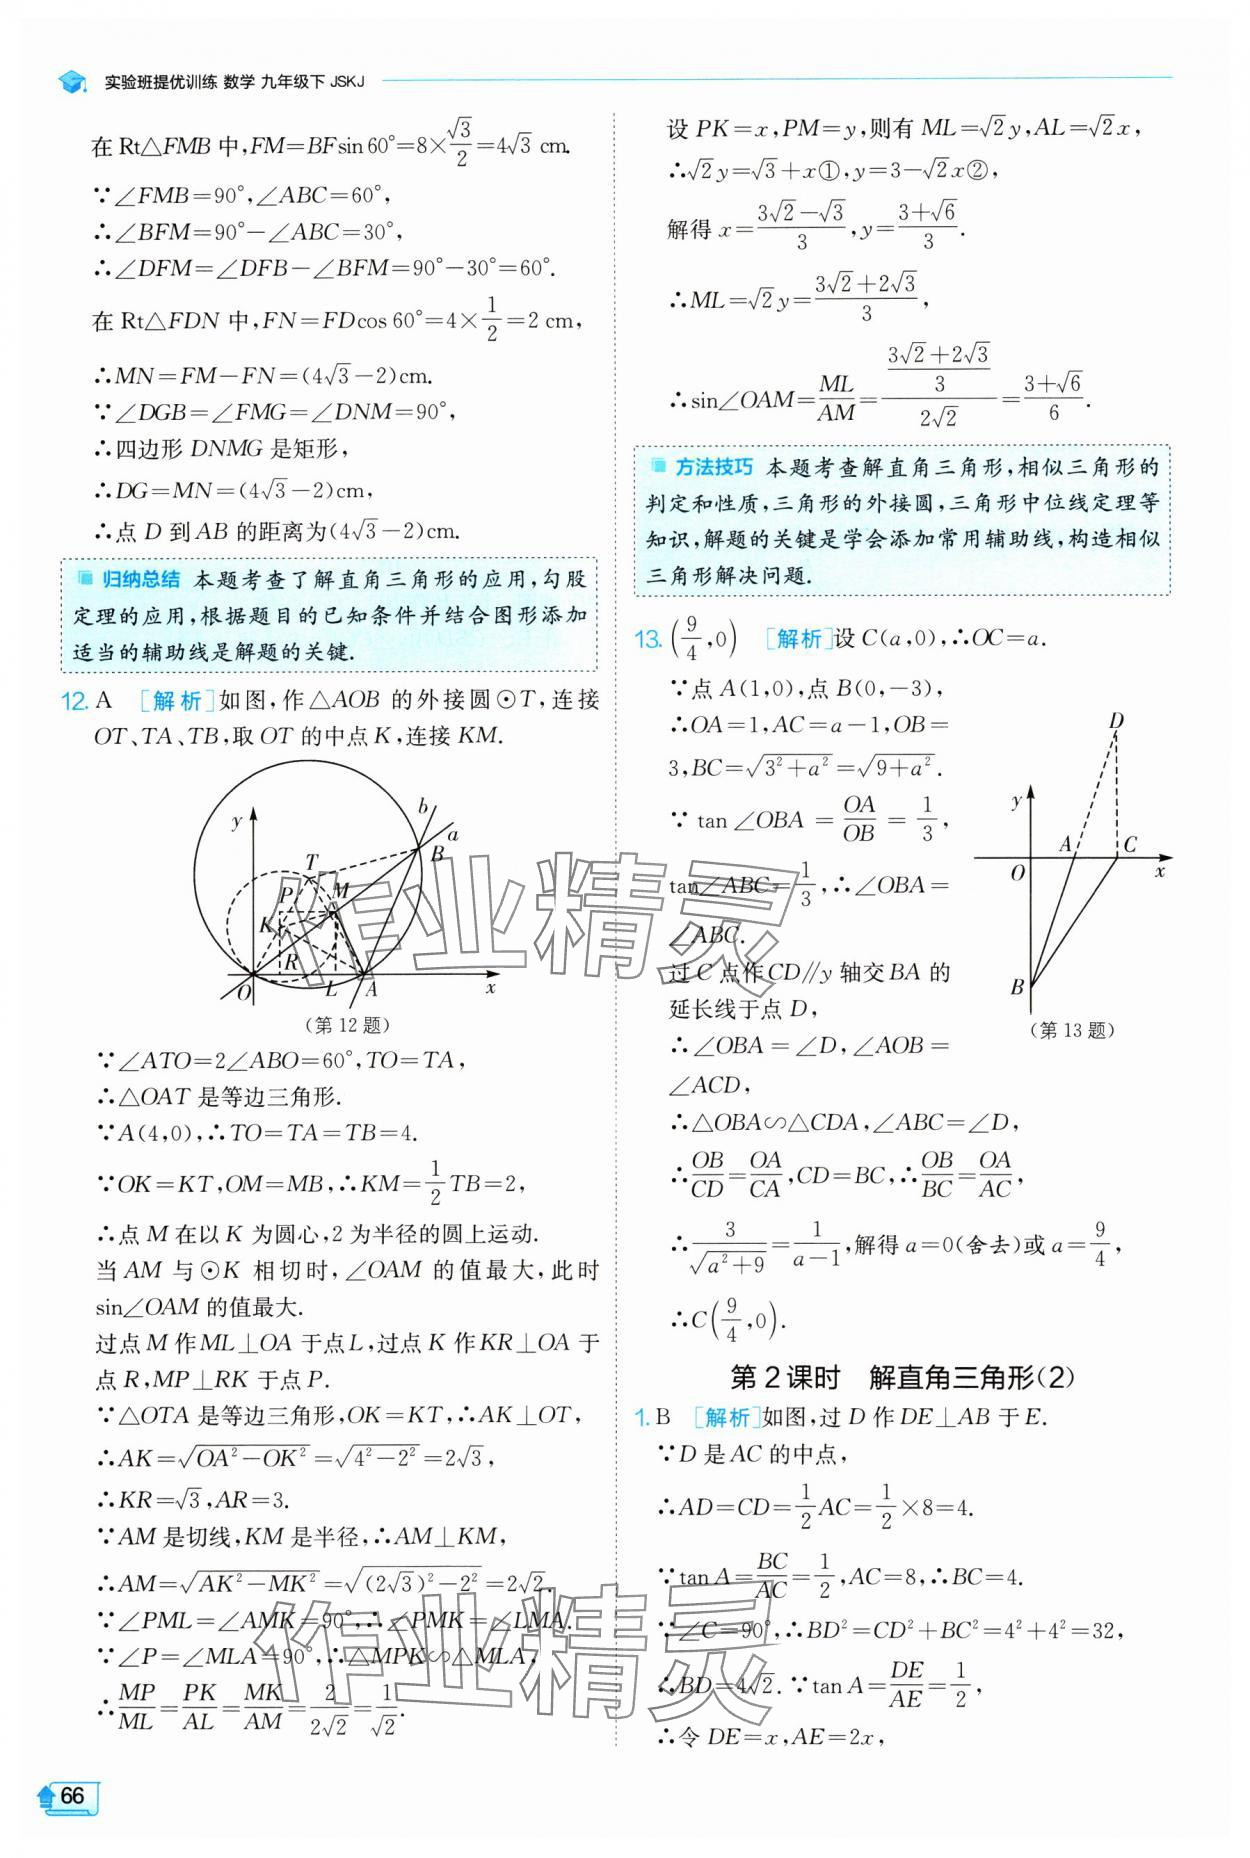 实验班提优训练 数学 九年级下 JSKJ
在 Rt△FMB 中,FM=BFsin 60°=8×√3/2=4√3 cm.
∵∠FMB=90°,∠ABC=60°,
∴∠BFM=90°-∠ABC=30°,
∴∠DFM=∠DFB-∠BFM=90°-30°=60°.
在 Rt△FDN 中,FN=FDcos 60°=4×1/2=2 cm,
∴MN=FM-FN=(4√3-2)cm.
∵∠DGB=∠FMG=∠DNM=90°,
∴四边形 DNMG 是矩形,
∴DG=MN=(4√3-2)cm,
∴点 D 到 AB 的距离为(4√3-2)cm.
归纳总结 本题考查了解直角三角形的应用,勾股
定理的应用,根据题目的已知条件并结合图形添加
适当的辅助线是解题的关键.
12. A [解析]如图,作△AOB 的外接圆⊙T,连接
OT、TA、TB,取 OT 的中点 K,连接 KM.
b
y
a
B
T
P
M
K
R
O
L
A
x
(第 12 题)
∵∠ATO=2∠ABO=60°,TO=TA,
∴△OAT 是等边三角形.
∵A(4,0),∴TO=TA=TB=4.
∵OK=KT,OM=MB,∴KM=1/2TB=2,
∴点 M 在以 K 为圆心,2 为半径的圆上运动.
当 AM 与⊙K 相切时,∠OAM 的值最大,此时
sin∠OAM 的值最大.
过点 M 作 ML⊥OA 于点 L,过点 K 作 KR⊥OA 于
点 R,MP⊥RK 于点 P.
∵△OTA 是等边三角形,OK=KT,∴AK⊥OT,
∴AK=√(OA²-OK²)=√(4²-2²)=2√3,
∴KR=√3,AR=3.
∵AM 是切线,KM 是半径,∴AM⊥KM,
∴AM=√(AK²-MK²)=√((2√3)²-2²)=2√2.
∵∠PML=∠AMK=90°,∴∠PMK=∠LMA.
∵∠P=∠MLA=90°,∴△MPK∽△MLA,
∴MP/ML=PK/AL=MK/AM=2/2√2=1/√2.
66
设 PK=x,PM=y,则有 ML=√2y,AL=√2x,
∴√2y=√3+x①,y=3-√2x②,
解得 x=(3√2-√3)/3,y=(3+√6)/3.
∴ML=√2y=(3√2+2√3)/3,
∴sin∠OAM=ML/AM=((3√2+2√3)/3)/(2√2)=(3+√6)/6.
方法技巧 本题考查解直角三角形,相似三角形的
判定和性质,三角形的外接圆,三角形中位线定理等
知识,解题的关键是学会添加常用辅助线,构造相似
三角形解决问题.
13. (9/4,0) [解析]设 C(a,0),∴OC=a.
∵点 A(1,0),点 B(0,-3),
∴OA=1,AC=a-1,OB=
3,BC=√(3²+a²)=√(9+a²).
∵tan∠OBA=OA/OB=1/3,
tan∠ABC=1/3,∴∠OBA=
∠ABC.
过 C 点作 CD∥y 轴交 BA 的
延长线于点 D,
∴∠OBA=∠D,∠AOB=
∠ACD,
D
y
A
C
O
x
B
(第 13 题)
∴△OBA∽△CDA,∠ABC=∠D,
∴OB/CD=OA/CA,CD=BC,∴OB/BC=OA/AC,
∴3/√(a²+9)=1/(a-1),解得 a=0(舍去)或 a=9/4,
∴C(9/4,0).
第 2 课时 解直角三角形(2)
1. B [解析]如图,过 D 作 DE⊥AB 于 E.
∵D 是 AC 的中点,
∴AD=CD=1/2AC=1/2×8=4.
∵tan A=BC/AC=1/2,AC=8,∴BC=4.
∵∠C=90°,∴BD²=CD²+BC²=4²+4²=32,
∴BD=4√2.∵tan A=DE/AE=1/2,
∴令 DE=x,AE=2x,
作业精灵
作业精灵